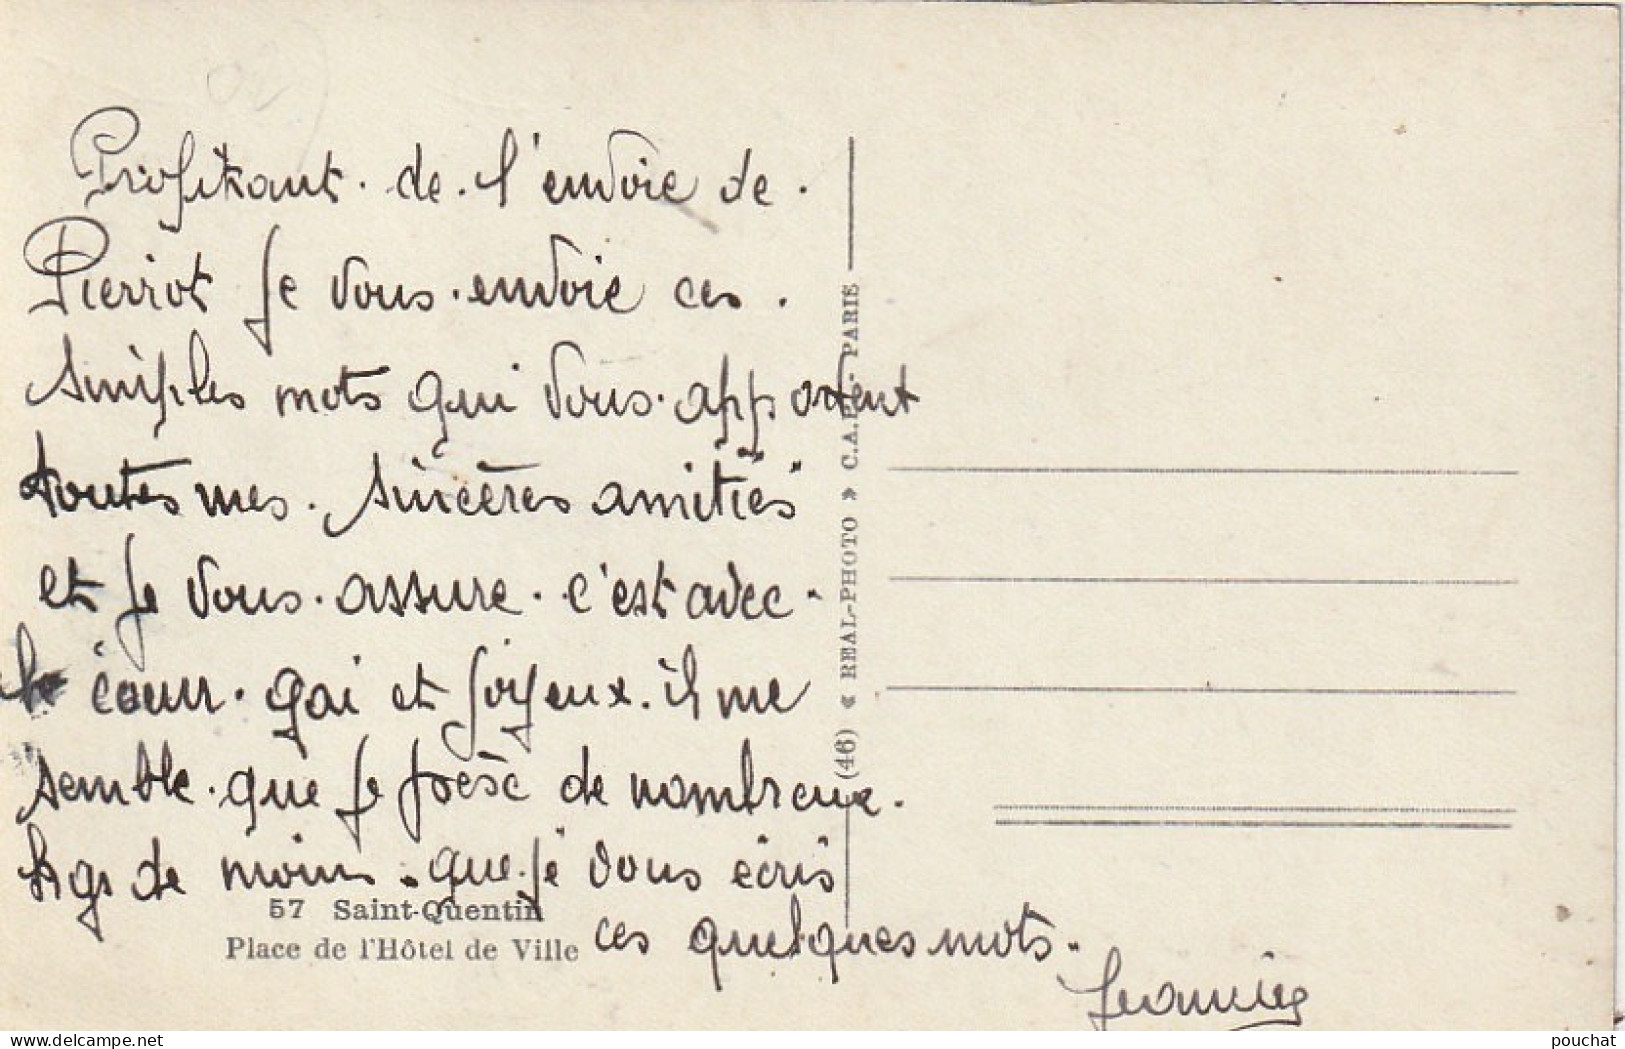 Profitant. de. l'envoie de.
Pierrot je vous. envoie ces.
simples mots qui vous. apportent
toutes mes. sincères amitiés
et je vous. assure. c'est avec.
le cœur. gai et joyeux. il me
semble. que je pèse de nombreux.
kgs de moins. que. je vous écris
ces quelques mots.
57 Saint-Quentin
Place de l'Hôtel de Ville
(46) « REAL-PHOTO » C.A.P. - PARIS
delcampe.net
pouchat